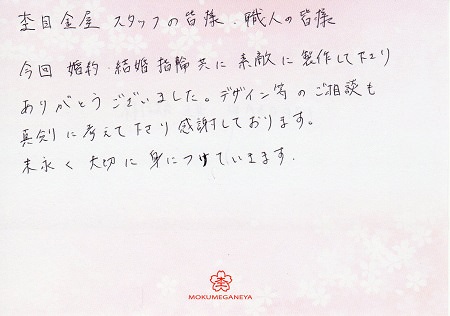 杢目金屋 スタッフの皆様・職人の皆様
今回 婚約・結婚指輪共に 素敵に製作して下さり
ありがとうございました。デザイン等のご相談も
真剣に考えて下さり感謝しております。
末永く大切に身につけていきます.
杢
MOKUMEGANEYA